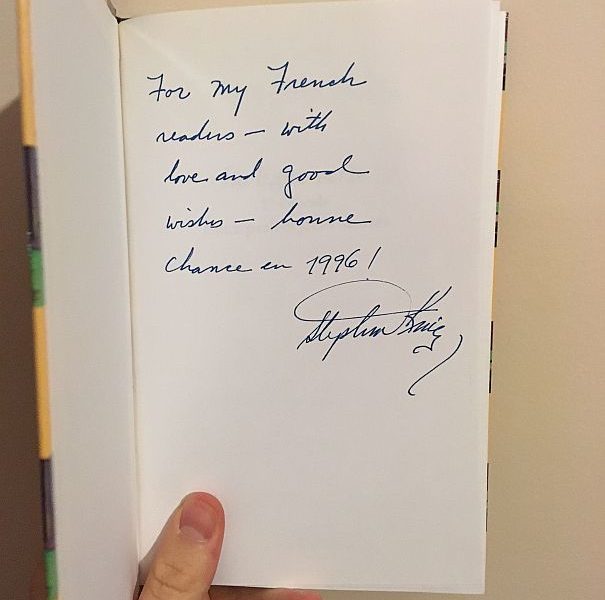 For my French
readers – with
love and good
wishes – bonne
chance en 1996!
Stephen King